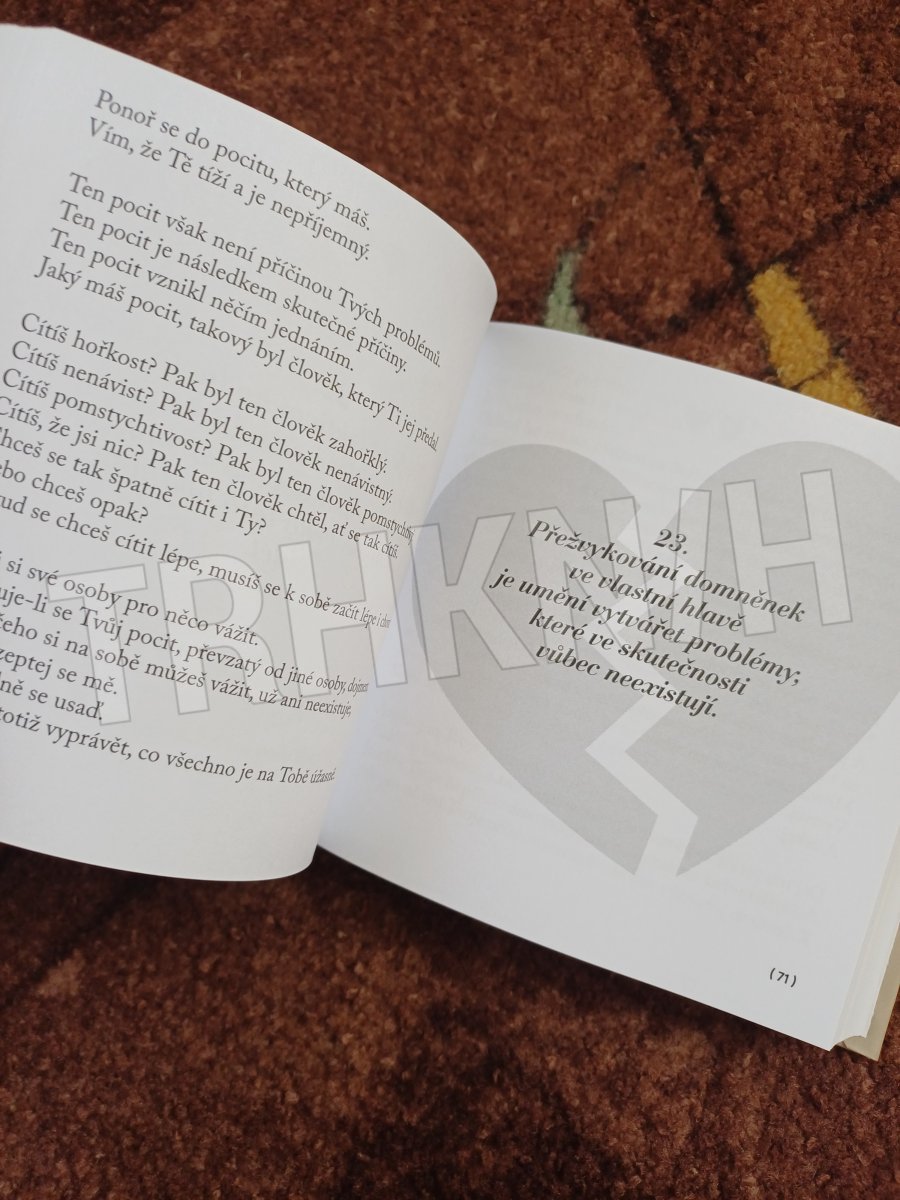 Ponoř se do pocitu, který máš.
Vím, že Tě tíží a je nepříjemný.
Ten pocit však není příčinou Tvých problémů.
Ten pocit je následkem skutečné příčiny.
Ten pocit vznikl něčím jednáním.
Jaký máš pocit, takový byl člověk, který Ti jej předal.
Cítíš hořkost? Pak byl ten člověk zahořklý.
Cítíš nenávist? Pak byl ten člověk nenávistný.
Cítíš pomstychtivost? Pak byl ten člověk pomstychtivý.
Cítíš, že jsi nic? Pak ten člověk chtěl, ať se tak cítíš.
Chceš se tak špatně cítit i Ty?
ebo chceš opak?
ud se chceš cítit lépe, musíš se k sobě začít lépe i chov
si své osoby pro něco vážit.
uje-li se Tvůj pocit, převzatý od jiné osoby, dojmem
čeho si na sobě můžeš vážit, už ani neexistuje,
zeptej se mě.
dně se usaď.
totiž vyprávět, co všechno je na Tobě úžasné.
23.
Přežvykování domněnek
ve vlastní hlavě
je umění vytvářet problémy,
které ve skutečnosti
vůbec neexistují.
(71)
TRHKNIH